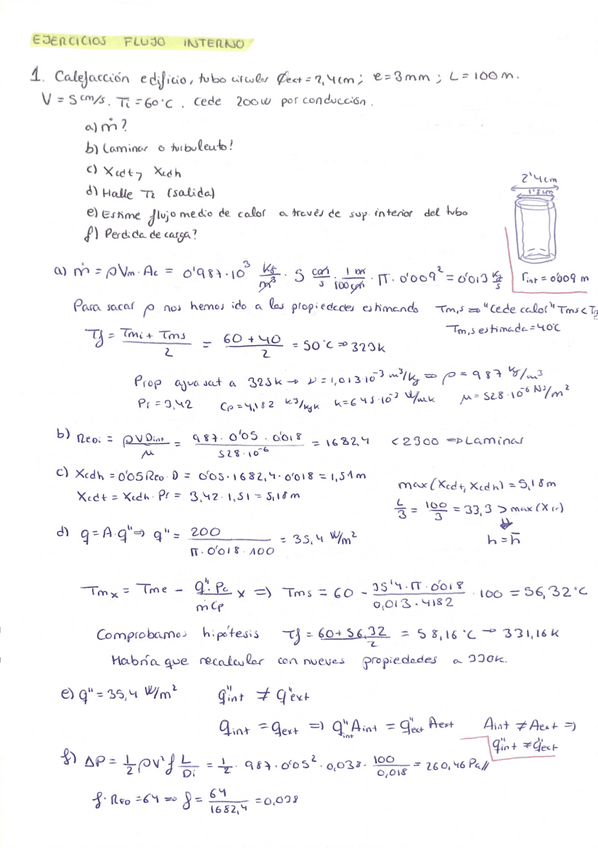 EJERCICIOS FLUJO INTERNO
1. Calefacción edificio, tubo circular Øext = 2,4cm; e = 3mm; L = 100m.
V = 5 cm/s. Ti = 60°C. Cede 200W por conducción.
a) ṁ?
b) Laminar o turbulento!
c) Xcdt y Xcdh
d) Halle T2 (salida)
e) Estime flujo medio de calor a través de sup interior del tubo
f) Perdida de carga?
2'4cm
1'8cm
rint = 0'009 m
a) ṁ = ρVm·Ac = 0'987·10³ Kg/m³ · 5 cm/s · 1m/100cm · Π·0'009² = 0'013 Kg/s
Para sacar ρ nos hemos ido a las propiedades estimando Tm,s => "Cede calor" Tms < T
Tm,s estimada = 40°C
Tf = (Tmi + Tms)/2 = (60 + 40)/2 = 50°C => 323K
Prop agua sat a 323K → ν = 1,013·10⁻³ m³/kg => ρ = 987 Kg/m³
Pr = 3,42 Cp = 4,182 KJ/kgK k = 645·10⁻³ W/mK μ = 528·10⁻⁶ Ns/m²
b) ReDi = ρVDint/μ = (987·0'05·0'018)/(528·10⁻⁶) = 1682,4 < 2300 => Laminar
c) Xcdh = 0'05 ReD·D = 0'05·1682,4·0'018 = 1,51m
Xcdt = Xcdh·Pr = 3,42·1,51 = 5,18m
max(Xcdt, Xcdh) = 5,18m
L/3 = 100/3 = 33,3 > max(Xcd)
h = h̄
d) q = A·q'' => q'' = 200/(Π·0'018·100) = 35,4 W/m²
Tmx = Tme - (q''·Pc/ṁCp) x => Tms = 60 - (35'4·Π·0'018)/(0,013·4182) · 100 = 56,32°C
Comprobamos hipótesis Tf = (60+56,32)/2 = 58,16°C → 331,16K
Habría que recalcular con nuevas propiedades a 330K.
e) q'' = 35,4 W/m² q''int ≠ q''ext
qint = qext => q''int Aint = q''ext Aext Aint ≠ Aext =>
q''int ≠ q''ext
f) ΔP = 1/2 ρV² f L/Di = 1/2 · 987·0'05²·0,038· 100/0,018 = 260,46 Pa//
f·ReD = 64 => f = 64/1682,4 = 0,038